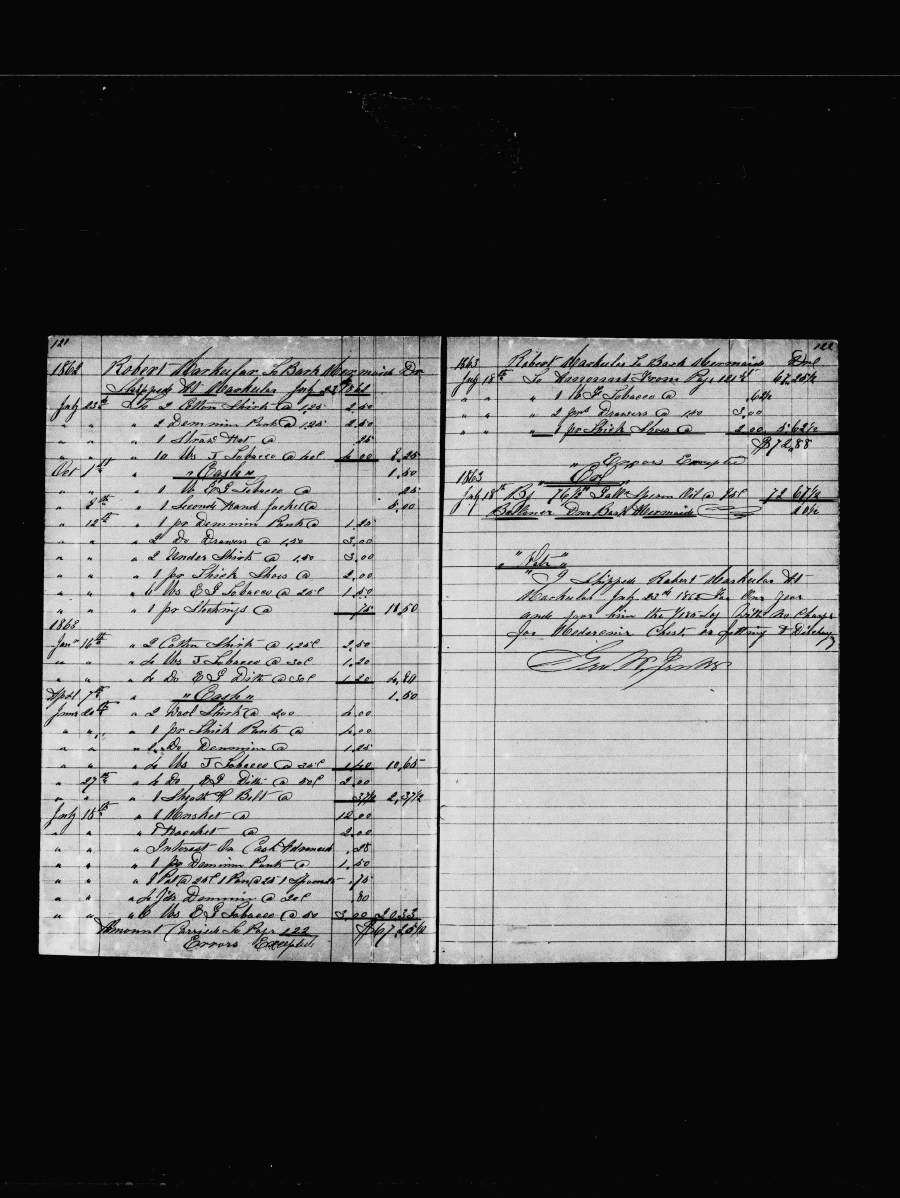 121
1862 Robert Markular To Bark Mermaid Dr
Shipped At Markular July 23rd 1862
July 23rd To 2 Cotton Shirts @ 1,25 2.50
" " " 2 Demmin Pants @ 1,25 2.50
" " " 1 Straw Hat @ 25
" " " 10 lbs T Tobacco @ 40c 4.00 9.25
Oct 1st " " Cash " 1.50
" " " 1 lb E G Tobacco @ 25
" 5th " 1 Second Hand Jacket @ 5.00
" 12th " 1 pr Demmin Pants @ 1.25
" " " 2 Do Drawers @ 1,50 3.00
" " " 2 Under Shirts @ 1,50 3.00
" " " 1 pr Thick Shoes @ 2.00
" " " 6 lbs E G Tobacco @ 25c 1.50
" " " 1 pr Stockings @ 75 18.50
1863
Jany 16th " 2 Cotton Shirts @ 1,25c 2.50
" " " 4 lbs T Tobacco @ 30c 1.20
" " " 4 Do E G Ditto @ 30c 1.20 4.90
April 7th " " Cash " 1.50
June 20th " 2 Wool Shirts @ 200 4.00
" " " 1 pr Thick Pants @ 4.00
" " " 1 Do Demmin @ 1.25
" " " 4 lbs T Tobacco @ 35c 1.40 10.65
" 27th " 4 Do E G Ditto @ 50c 2.00
" " " 1 Sheath & Belt @ 37½ 2,37½
July 18th " 1 Musket @ 12.00
" " " 1 Hatchet @ 2.00
" " " Interest On Cash Advanced .28
" " " 1 pr Demmin Pants @ 1.50
" " " 1 Pot @ 25c 1 Pan @ 25 1 Spoon .75
" " " 4 Yds Demmin @ 20c 80
" " " 6 lbs E G Tobacco @ 50 3.00 20.33
Amount Carried To Page 122 $67,25½
Errors Excepted
122
1863 Robert Markular To Bark Mermaid Dr
July 18th To Amount From Page 121st 67,25½
" " " 1 lb T Tobacco @ .62½
" " " 2 prs Drawers @ 1,50 3.00
" " " 1 pr Thick Shoes @ 2.00 5.62½
$72,88
" Errors Excepted
1863 " Cr "
July 18th By 76½ Galls Sperm Oil @ 95c 72 67½
Ballance Due Bark Mermaid 20½
" Note "
" I Shipped Robert Markular At
Markular July 23rd 1862 For One Year
and gave him the Lay With No Charge
for Medecine Chest or fitting & Discharg
Geo W Jenks